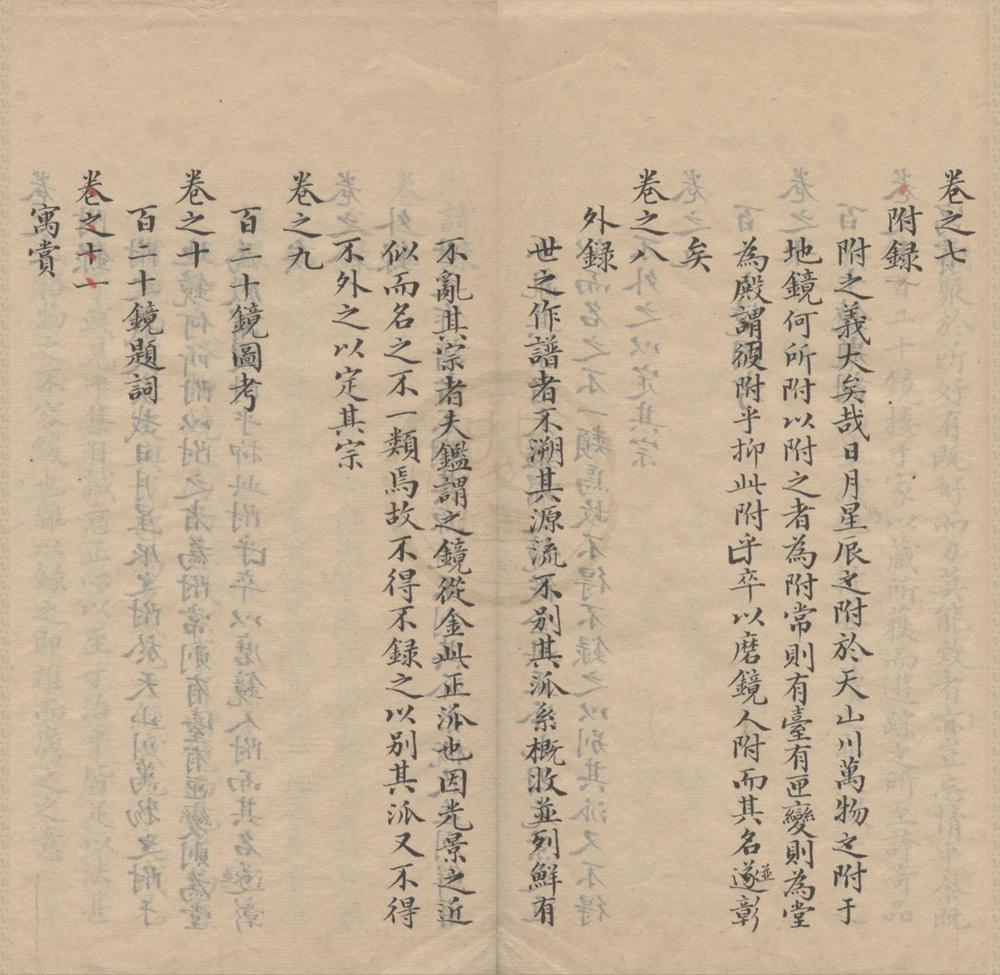 卷之七
附録
附之義大矣哉日月星辰之附於天山川萬物之附于
地鏡何所附以附之者為附常則有臺有匣變則為堂
為殿謂彼附乎抑此附乎卒以磨鏡人附而其名遂並彰
矣
卷之八
外録
世之作譜者不溯其源流不別其派系概收並列鮮有
不亂其宗者夫鑑謂之鏡從金此正派也因光景之近
似而名之不一類焉故不得不録之以別其派又不得
不外之以定其宗
卷之九
百二十鏡圖考
卷之十
百二十鏡題詞
卷之十一
寓賞